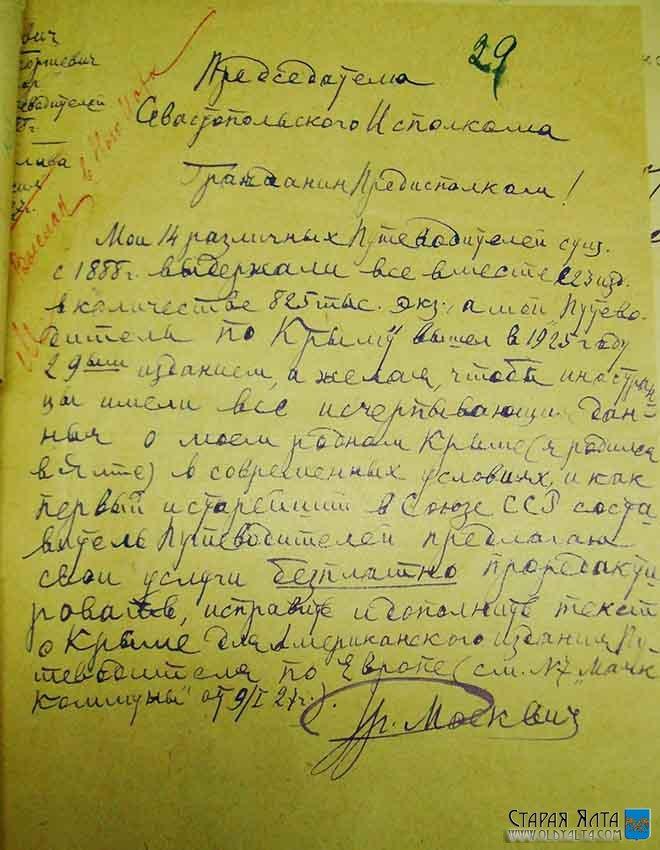 29
Председателю
Севастопольского Исполкома
Гражданин Предисполком!
Мои 14 различных Путеводителей сущ.
с 1888г. выдержали все вместе 223 изд.
в количестве 825 тыс. экз., а мой Путево-
дитель по Крыму вышел в 1925 году
29ым изданием, а желая, чтобы иностран-
цы имели все исчерпывающие дан-
ныя о моем родном Крыме (я родился
в Ялте) в современных условиях, и как
первый и старейший в Союзе ССР соста-
витель Путеводителей предлагаю
свои услуги безплатно проредакти-
ровать, исправить и дополнить текст
о Крыме для Американского издания Пу-
теводителя по Европе (см. №7 "Маяк
Коммуны" от 9/I 27г.).
Гр. Москвич
вич
оргиевич
ор
теводителей
Выслан в Нью Иорк
Старая Ялта
www.oldyalta.com